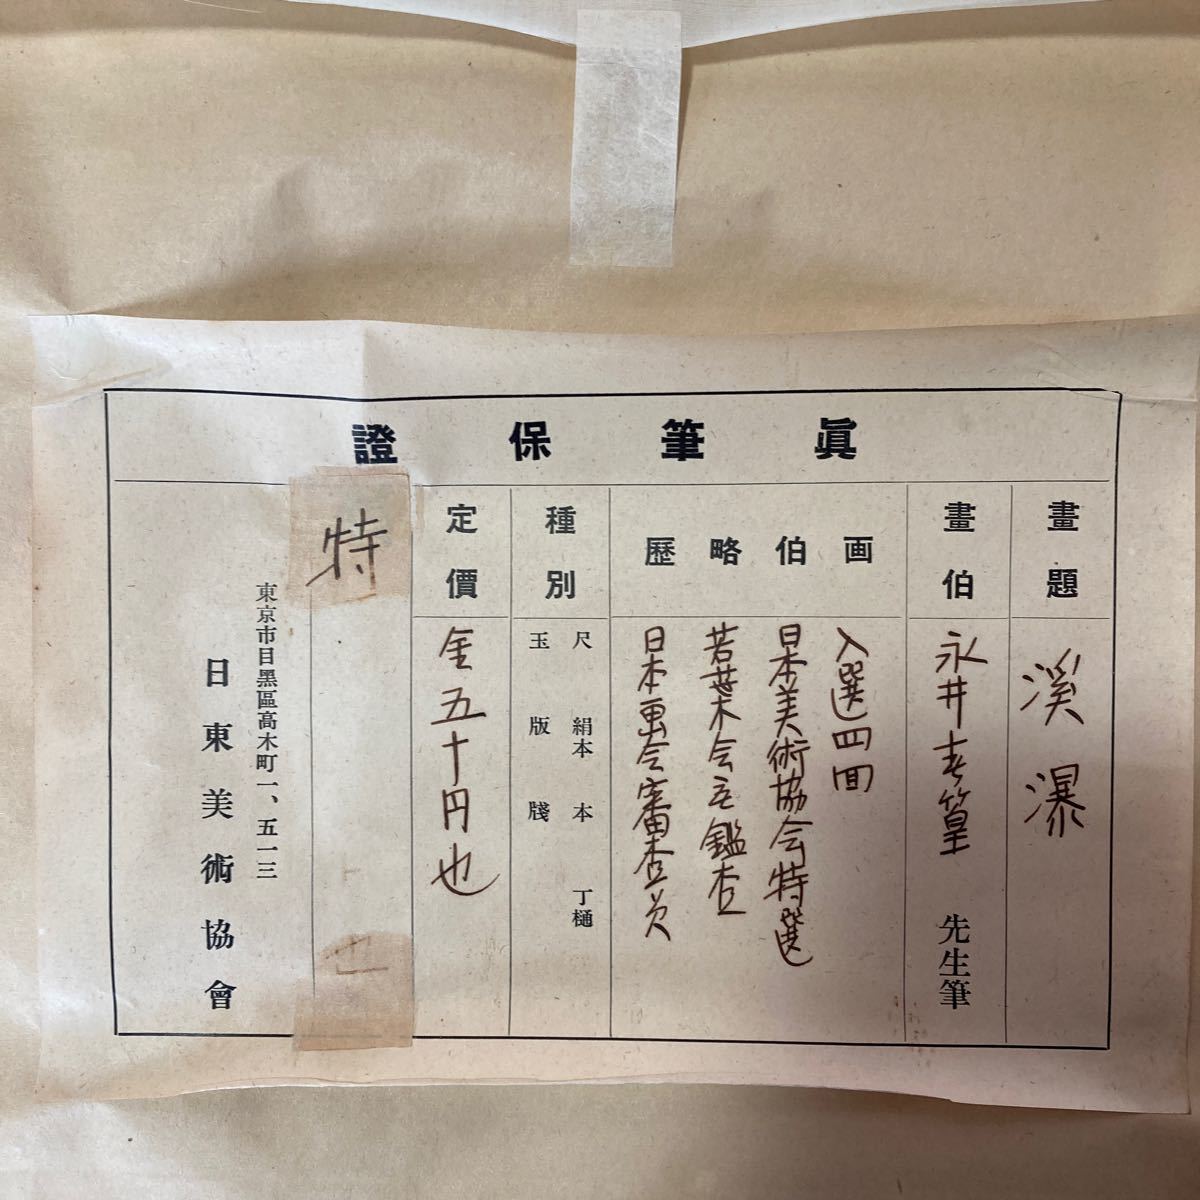 眞筆保證
畫題
溪瀑
畫伯
永井春篁 先生筆
画伯略歴
入選四回
日本美術協会特選
若葉会無鑑査
日本画会審査員
種別
尺 絹本 本 丁樋
玉版牋
定價
金五十円也
特
也
東京市目黑區高木町一、五一三
日東美術協會